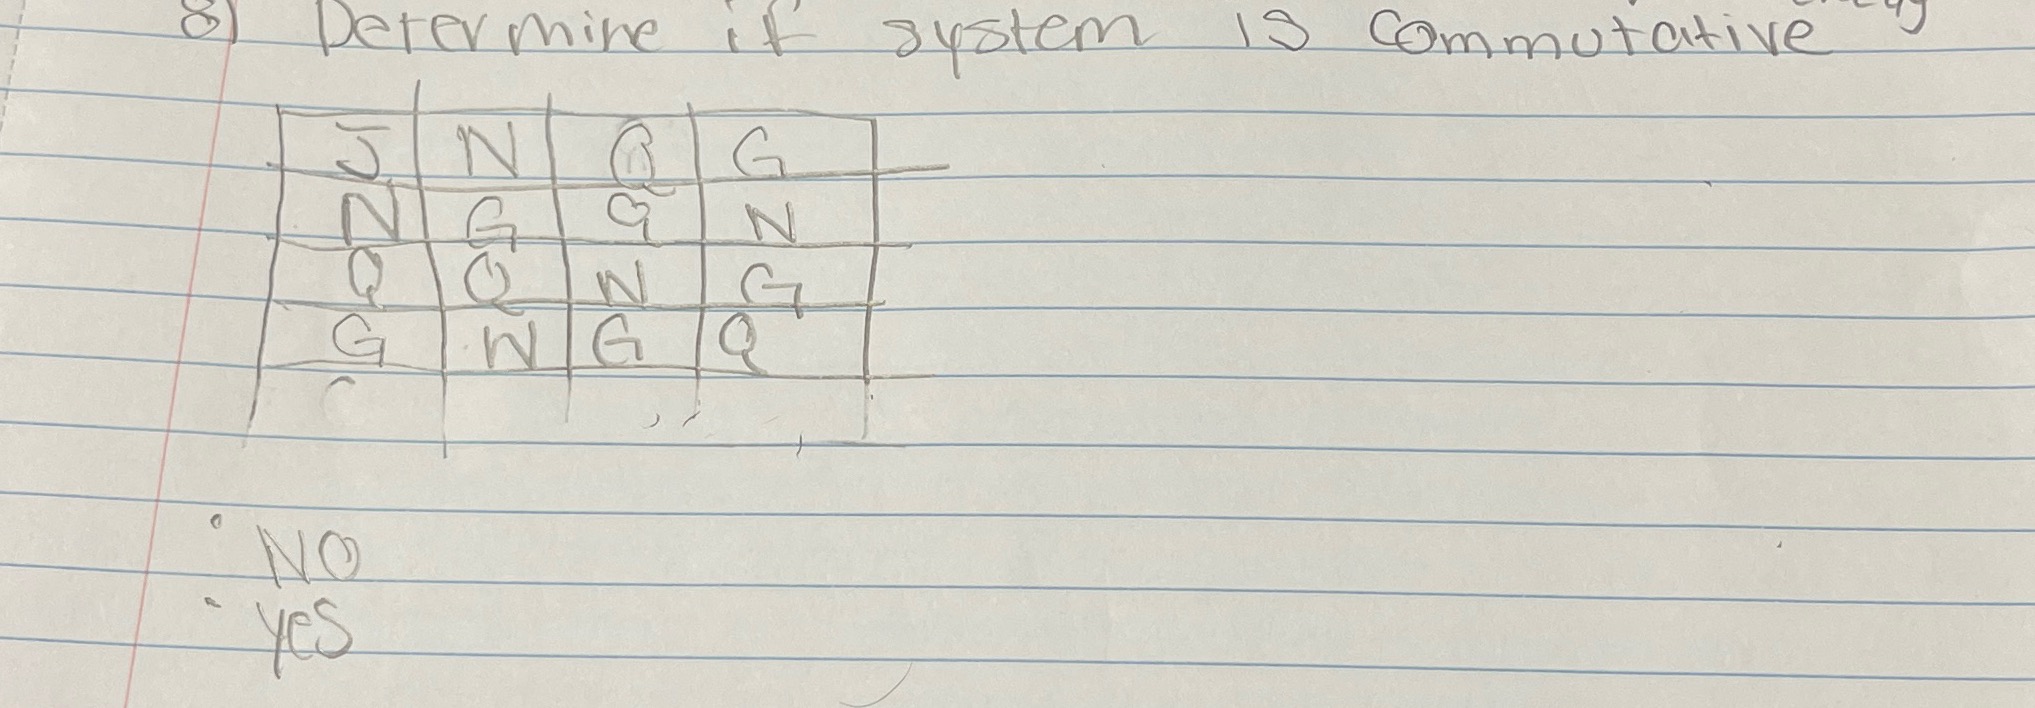 8) Determine if system is commutative
J N Q G
N G Q N
Q Q N G
G N G Q
NO
yes